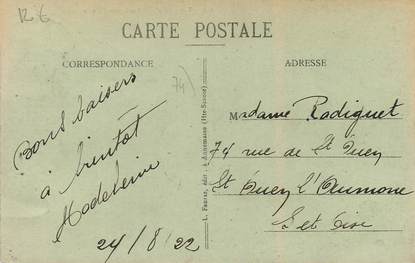 R6
CARTE POSTALE
CORRESPONDANCE
ADRESSE
74)
Bons baisers
à bientôt
Madeleine
24/8/22
L. Fauraz, édit. à Annemasse (Hte-Savoie)
Madame Radiguet
74 rue de St Ouen
St Ouen l'Aumone
S et Oise